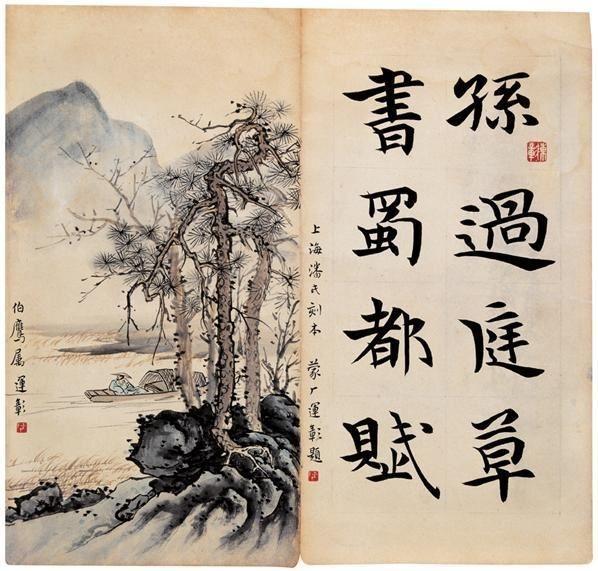 孫過庭草
書蜀都賦
上海潘氏刻本 蒙厂運彰題
伯鷹属運彰